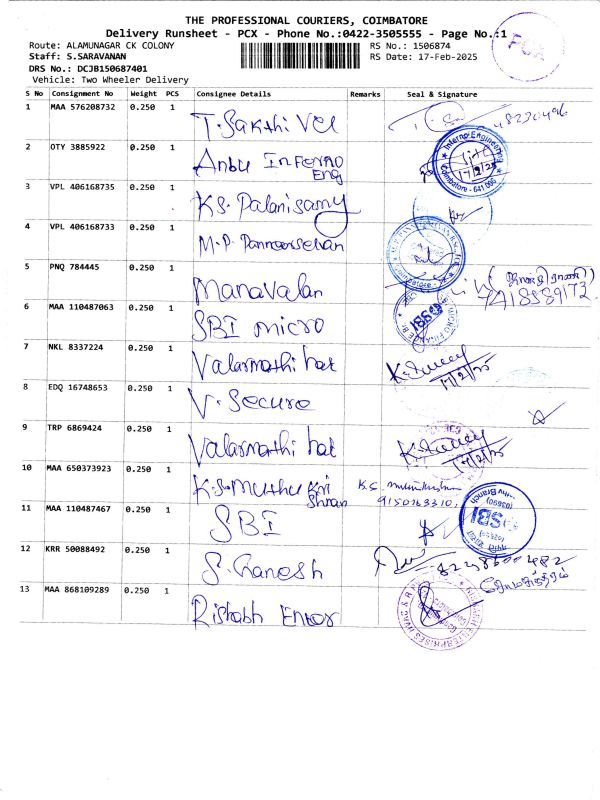 THE PROFESSIONAL COURIERS, COIMBATORE
Delivery Runsheet - PCX - Phone No.:0422-3505555 - Page No.:1
Route: ALAMUNAGAR CK COLONY RS No.: 1506874
Staff: S.SARAVANAN RS Date: 17-Feb-2025
DRS No.: DCJB150687401
Vehicle: Two Wheeler Delivery
S No Consignment No Weight PCS Consignee Details Remarks Seal & Signature
1 MAA 576208732 0.250 1
T. Sakthi Vel
2 OTY 3885922 0.250 1
Anbu Inferno
Eng
3 VPL 406168735 0.250 1
K.S. Palanisamy
4 VPL 406168733 0.250 1
M.P. Panneerselvan
5 PNQ 784445 0.250 1
Manavalan
6 MAA 110487063 0.250 1
SBI micro
7 NKL 8337224 0.250 1
Valarmathi hat
17/2/25
8 EDQ 16748653 0.250 1
V. Secure
9 TRP 6869424 0.250 1
Valarmathi hat
17/2/25
10 MAA 650373923 0.250 1
K.S. Muthu Kri
Shnan
9150763310
11 MAA 110487467 0.250 1
SBI
SBI
12 KRR 50088492 0.250 1
S. Ganesh
13 MAA 868109289 0.250 1
Rishabh Enter